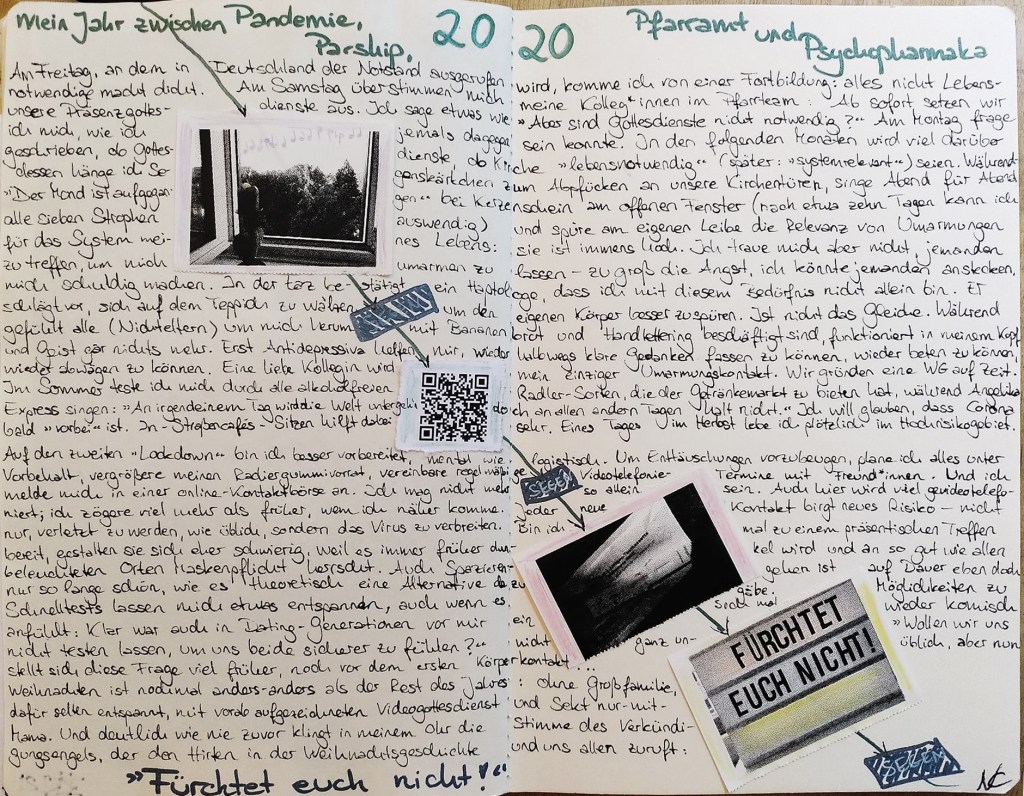 Mein Jahr zwischen Pandemie, Parship, 2020 Pfarramt und Psychopharmaka
Am Freitag, an dem in Deutschland der Notstand ausgerufen wird, komme ich von einer Fortbildung: alles nicht Lebens-
notwendige macht dicht. Am Samstag überstimmen mich meine Kolleg*innen im Pfarrteam: Ab sofort setzen wir
unsere Präsenzgottesdienste aus. Ich sage etwas wie »Aber sind Gottesdienste nicht notwendig?“ Am Montag frage
ich mich, wie ich jemals dagegen sein konnte. In den folgenden Monaten wird viel darüber
geschrieben, ob Gottesdienste ob Kirche »lebensnotwendig“ (später: »systemrelevant“) seien. Während-
dessen hänge ich Segenskärtchen zum Abpflücken an unsere Kirchentüren, singe Abend für Abend
»Der Mond ist aufgegangen“ bei Kerzenschein am offenen Fenster (nach etwa zehn Tagen kann ich
alle sieben Strophen auswendig) und spüre am eigenen Leibe die Relevanz von Umarmungen
für das System meines Lebens: sie ist immens hoch. Ich traue mich aber nicht, jemanden
zu treffen, um mich umarmen zu lassen – zu groß die Angst, ich könnte jemanden anstecken,
mich schuldig machen. In der taz bestätigt ein Haptologe, dass ich mit diesem Bedürfnis nicht allein bin. Er
schlägt vor, sich auf dem Teppich zu wälzen um den eigenen Körper besser zu spüren. Ist nicht das Gleiche. Während
gefühlt alle (Nichteltern) um mich herum mit Bananenbrot und Handlettering beschäftigt sind, funktioniert in meinem Kopf
und Geist gar nichts mehr. Erst Antidepressiva helfen mir, wieder halbwegs klare Gedanken fassen zu können, wieder beten zu können,
wieder abwägen zu können. Eine liebe Kollegin wird mein einziger Umarmungskontakt. Wir gründen eine WG auf Zeit.
Im Sommer teste ich mich durch alle alkoholfreien Radler-Sorten, die der Getränkemarkt zu bieten hat, während Angelika
Express singen: »An irgendeinem Tag wird die Welt untergehn doch an allen andern Tagen halt nicht.“ Ich will glauben, dass Corona
bald »vorbei“ ist. In-Straßencafés-Sitzen hilft dabei sehr. Eines Tages im Herbst lebe ich plötzlich im Hochrisikogebiet.
Auf den zweiten "Lockdown" bin ich besser vorbereitet, mental wie logistisch. Um Enttäuschungen vorzubeugen, plane ich alles unter
Vorbehalt, vergrößere meinen Radiergummivorrat, vereinbare regelmäßige Videotelefonie-Termine mit Freund*innen. Und ich
melde mich in einer online-Kontaktbörse an. Ich mag nicht mehr so allein sein. Auch hier wird viel gevideotelefo-
niert; ich zögere viel mehr als früher, wenn ich näher komme. Jeder neue Kontakt birgt neues Risiko – nicht
nur, verletzt zu werden, wie üblich, sondern das Virus zu verbreiten. Bin ich mal zu einem präsentischen Treffen
bereit, gestalten sie sich eher schwierig, weil es immer früher dunkel wird und an so gut wie allen
beleuchteten Orten Maskenpflicht herrscht. Auch Spazierengehen ist auf Dauer eben doch
nur so lange schön, wie es theoretisch eine Alternative dazu gäbe. Möglichkeiten zu
Schnelltests lassen mich etwas entspannen, auch wenn es sich mal wieder komisch
anfühlt: Klar war auch in Dating-Generationen vor mir ein »Wollen wir uns
nicht testen lassen, um uns beide sicherer zu fühlen?“ nicht ganz unüblich, aber nun
stellt sich diese Frage viel früher, noch vor dem ersten Körperkontakt...
Weihnachten ist nochmal anders-anders als der Rest des Jahres: ohne Großfamilie,
dafür selten entspannt, mit vorab aufgezeichneten Videogottesdienst und Sekt nur-mit-
Mama. Und deutlich wie nie zuvor klingt in meinem Ohr die Stimme des Verkündi-
gungsengels, der den Hirten in der Weihnachtsgeschichte und uns allen zuruft:
»Fürchtet euch nicht!“
SEGEN
FÜRCHTET
EUCH NICHT!
NC